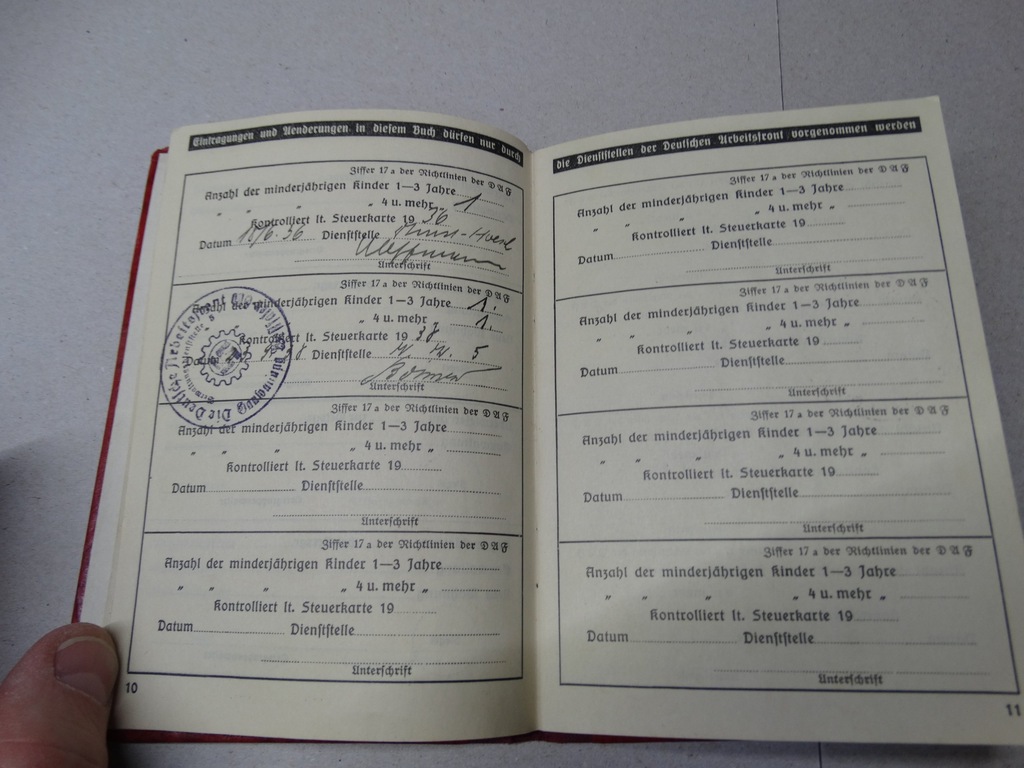 Eintragungen und Aenderungen in diesem Buch dürfen nur durch
Ziffer 17 a der Richtlinien der DAF
Anzahl der minderjährigen Kinder 1—3 Jahre
„ „ „ „ 4 u. mehr „ 1
Kontrolliert lt. Steuerkarte 19 36
Datum 18/6.36 Dienststelle
Unterschrift
Ziffer 17 a der Richtlinien der DAF
Anzahl der minderjährigen Kinder 1—3 Jahre 1.
„ 4 u. mehr „ 1.
Kontrolliert lt. Steuerkarte 19 38
Dienststelle W. W. 5
Unterschrift
Die Deutsche Arbeitsfront
Ziffer 17 a der Richtlinien der DAF
Anzahl der minderjährigen Kinder 1—3 Jahre
„ „ „ „ 4 u. mehr „
Kontrolliert lt. Steuerkarte 19
Datum Dienststelle
Unterschrift
Ziffer 17 a der Richtlinien der DAF
Anzahl der minderjährigen Kinder 1—3 Jahre
„ „ „ „ 4 u. mehr „
Kontrolliert lt. Steuerkarte 19
Datum Dienststelle
Unterschrift
10
die Dienststellen der Deutschen Arbeitsfront vorgenommen werden
Ziffer 17 a der Richtlinien der DAF
Anzahl der minderjährigen Kinder 1—3 Jahre
„ „ „ „ 4 u. mehr „
Kontrolliert lt. Steuerkarte 19
Datum Dienststelle
Unterschrift
Ziffer 17 a der Richtlinien der DAF
Anzahl der minderjährigen Kinder 1—3 Jahre
„ „ „ „ 4 u. mehr „
Kontrolliert lt. Steuerkarte 19
Datum Dienststelle
Unterschrift
Ziffer 17 a der Richtlinien der DAF
Anzahl der minderjährigen Kinder 1—3 Jahre
„ „ „ „ 4 u. mehr „
Kontrolliert lt. Steuerkarte 19
Datum Dienststelle
Unterschrift
Ziffer 17 a der Richtlinien der DAF
Anzahl der minderjährigen Kinder 1—3 Jahre
„ „ „ „ 4 u. mehr „
Kontrolliert lt. Steuerkarte 19
Datum Dienststelle
Unterschrift
11